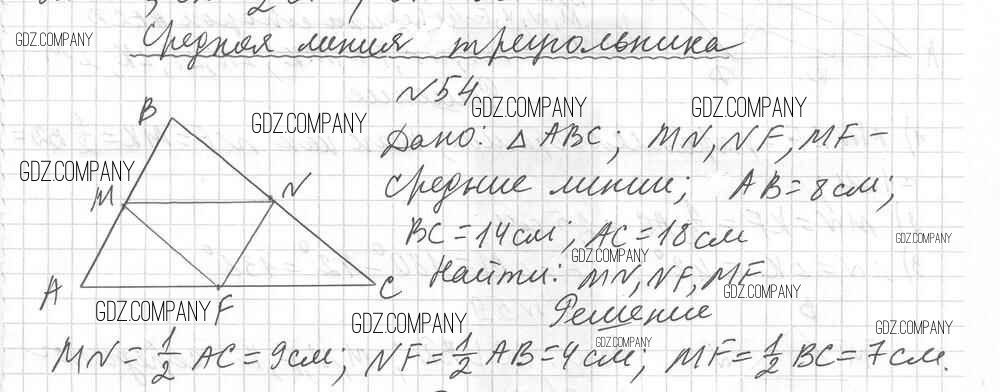 Средняя линия треугольника
№54
Дано: △ABC; MN, NF, MF –
средние линии; AB = 8 см;
BC = 14 см; AC = 18 см
Найти: MN, NF, MF
Решение
MN = 1/2 AC = 9 см; NF = 1/2 AB = 4 см; MF = 1/2 BC = 7 см.
B
M
N
A
F
C
GDZ.COMPANY
GDZ.COMPANY
GDZ.COMPANY
GDZ.COMPANY
GDZ.COMPANY
GDZ.COMPANY
GDZ.COMPANY
GDZ.COMPANY
GDZ.COMPANY
GDZ.COMPANY
GDZ.COMPANY
GDZ.COMPANY